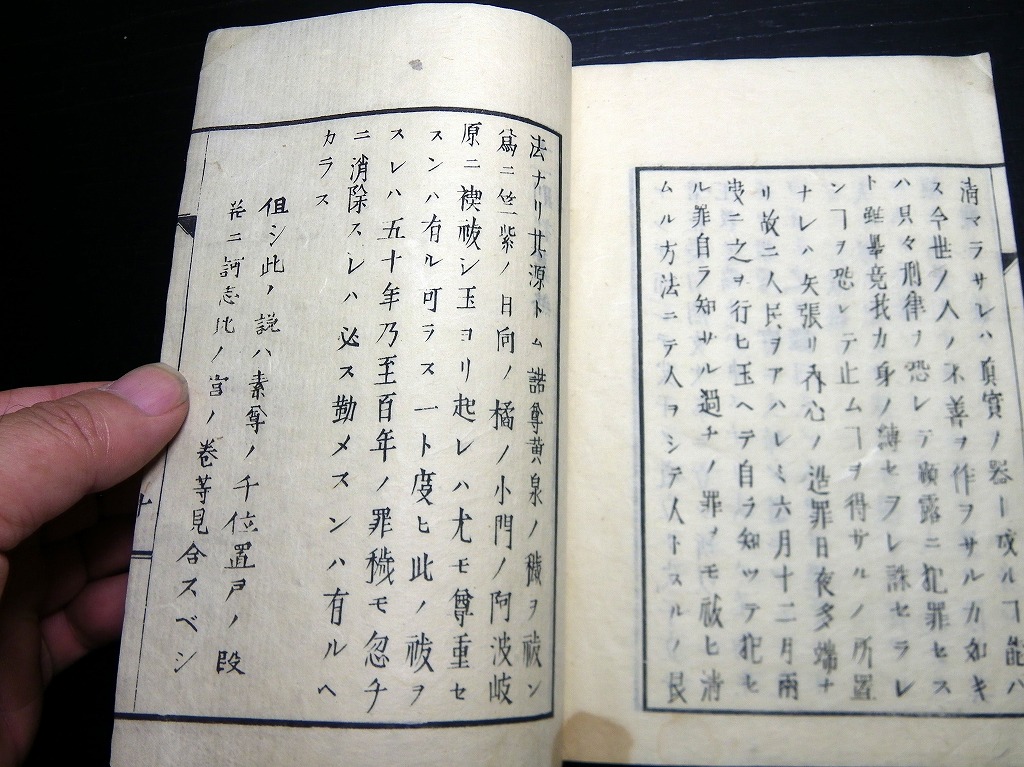 淸マラサレハ眞實ノ器ト成ルヿ能ハ
ス今世ノ人ノ不善ヲ作ヲサルカ如キ
ハ只々刑律ヲ恐レテ顕露ニ犯罪セス
ト雖畢竟我カ身ノ縛セラレ誅セラレ
ンヿヲ恐レテ止ムヿヲ得サルノ所置
ナレハ矢張リ呑心ノ造罪日夜多端ナ
リ故ニ人民ヲアハレミ六月十二月兩
度ニ之ヲ行ヒ玉ヘテ自ラ知ツテ犯セ
ル罪自ラ知ザル過チノ罪ノモ祓ヒ淸
ムル方法ニテ人ヲシテ人トスルノ良
法ナリ其源トム諾尊黄泉ノ穢ヲ祓ン
爲ニ竺紫ノ日向ノ橘ノ小門ノ阿波岐
原ニ禊祓シ玉ヨリ起レハ尤モ尊重セ
スンハ有ル可ラス一ト度ヒ此ノ祓ヲ
スレハ五十年乃至百年ノ罪穢モ忽チ
ニ消除スレハ必ス勤メスンハ有ルヘ
カラス
但シ此ノ説ハ素尊ノ千位置戸ノ段
并ニ訶志比ノ宮ノ巻等見合スベシ
十